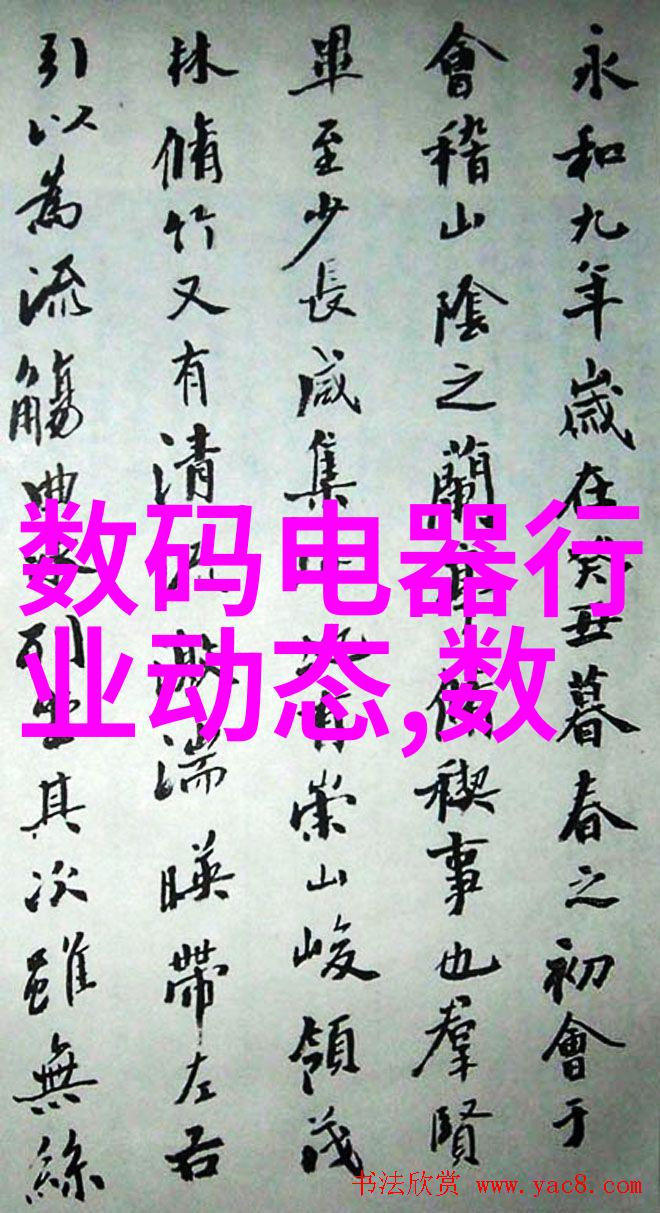 永和九年歲在癸丑暮春之初會于
會稽山陰之蘭亭脩禊事也羣賢
畢至少長咸集地有崇山峻領茂
林脩竹又有清流激湍暎帶左右
引以為流觴曲水列坐其次雖無絲
数码电器行
业动态,数
书法欣赏 www.yac8.com